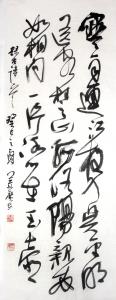 寒雨連江夜入吳平明
送客楚山孤洛陽親友
如相問一片冰心在玉壺